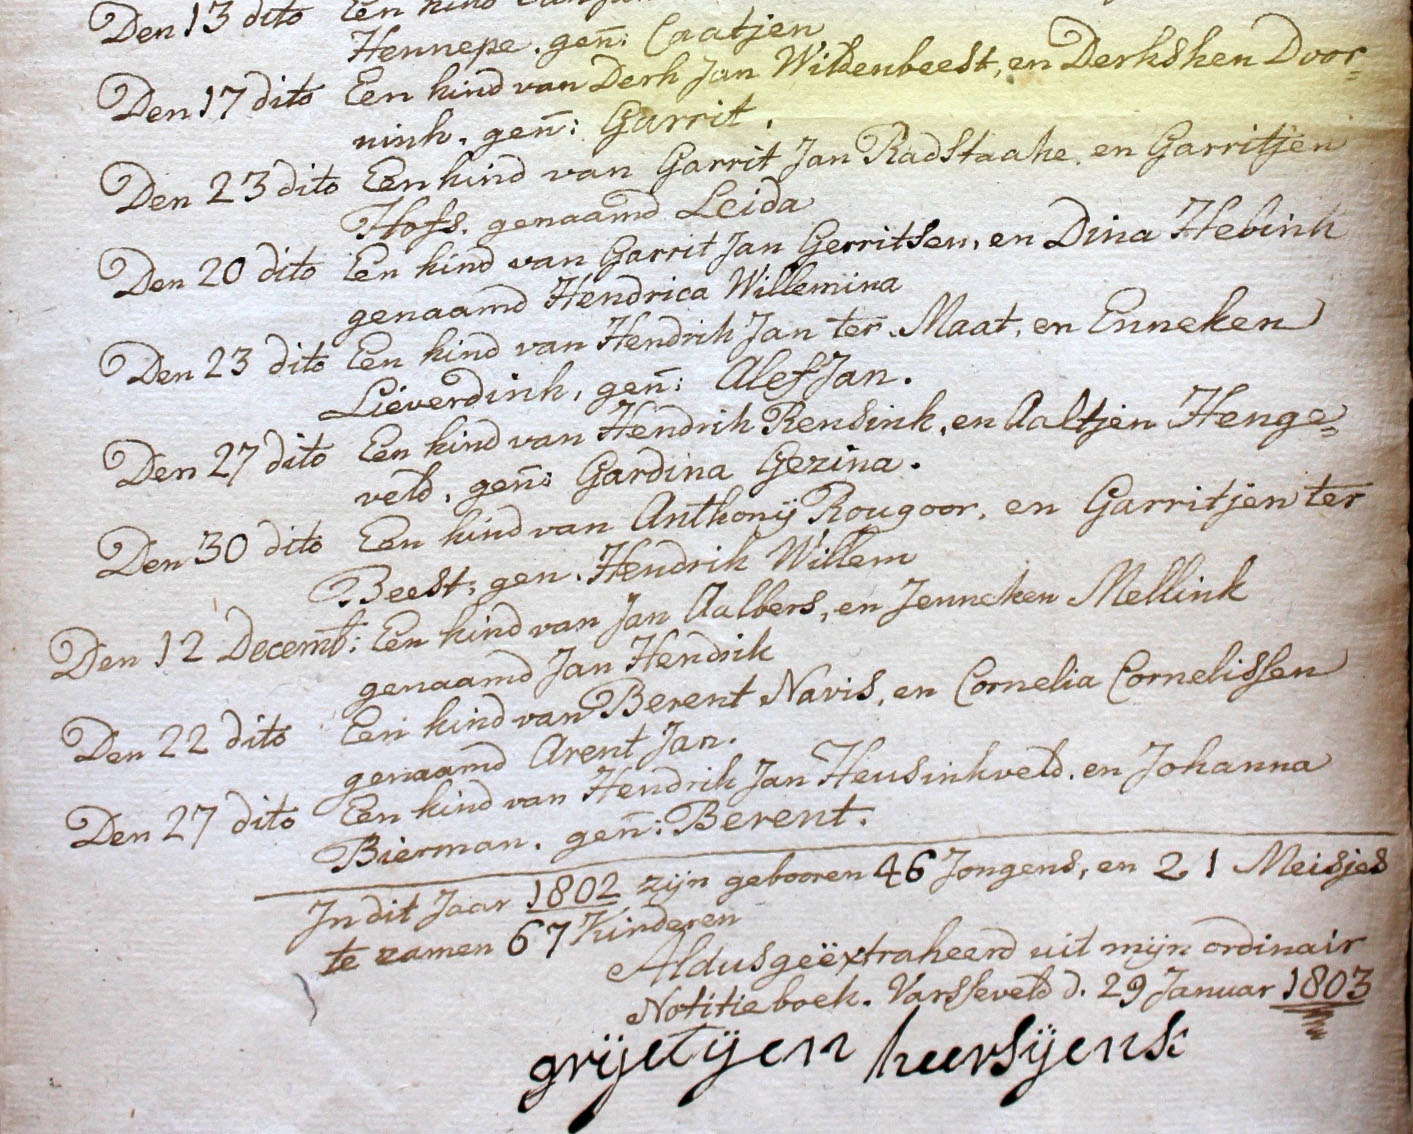 Den 13 dito Een kind
Hennepe. gen̄: Caatjen
Den 17 dito Een kind van Derk Jan Wildenbeest, en Derksken Door=
nink. gen̄: Garrit.
Den 23 dito Een kind van Garrit Jan Radstaake. en Garritjen
Hofs. genaamd Leida
Den 20 dito Een kind van Garrit Jan Gerritsen, en Dina Hebink
genaamd Hendrica Willemina
Den 23 dito Een kind van Hendrik Jan ter Maat, en Enneken
Lieverdink, gen̄: Alef Jan.
Den 27 dito Een kind van Hendrik Rensink, en Aaltjen Henge=
veld. gen̄: Gardina Gezina.
Den 30 dito Een kind van Anthonij Rougoor, en Garritjen ter
Beest; gen. Hendrik Willem
Den 12 Decembr: Een kind van Jan Aalbers, en Jenneken Mellink
genaamd Jan Hendrik
Den 22 dito Een kind van Berent Navis, en Cornelia Cornelissen
genaamd Arent Jan.
Den 27 dito Een kind van Hendrik Jan Heusinkveld. en Johanna
Bierman. gen̄: Berent.
In dit Jaar 1802 zijn gebooren 46 Jongens, en 21 Meisjes
te zamen 67 Kinderen
Aldus geëxtraheerd uit mijn ordinair
Notitieboek. Varsseveld d. 29 Januar 1803
grijetijen heersijenk